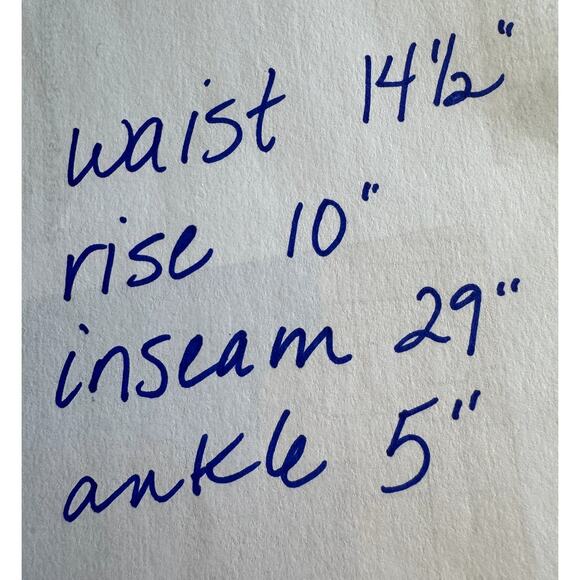 waist 14½"
rise 10"
inseam 29"
ankle 5"